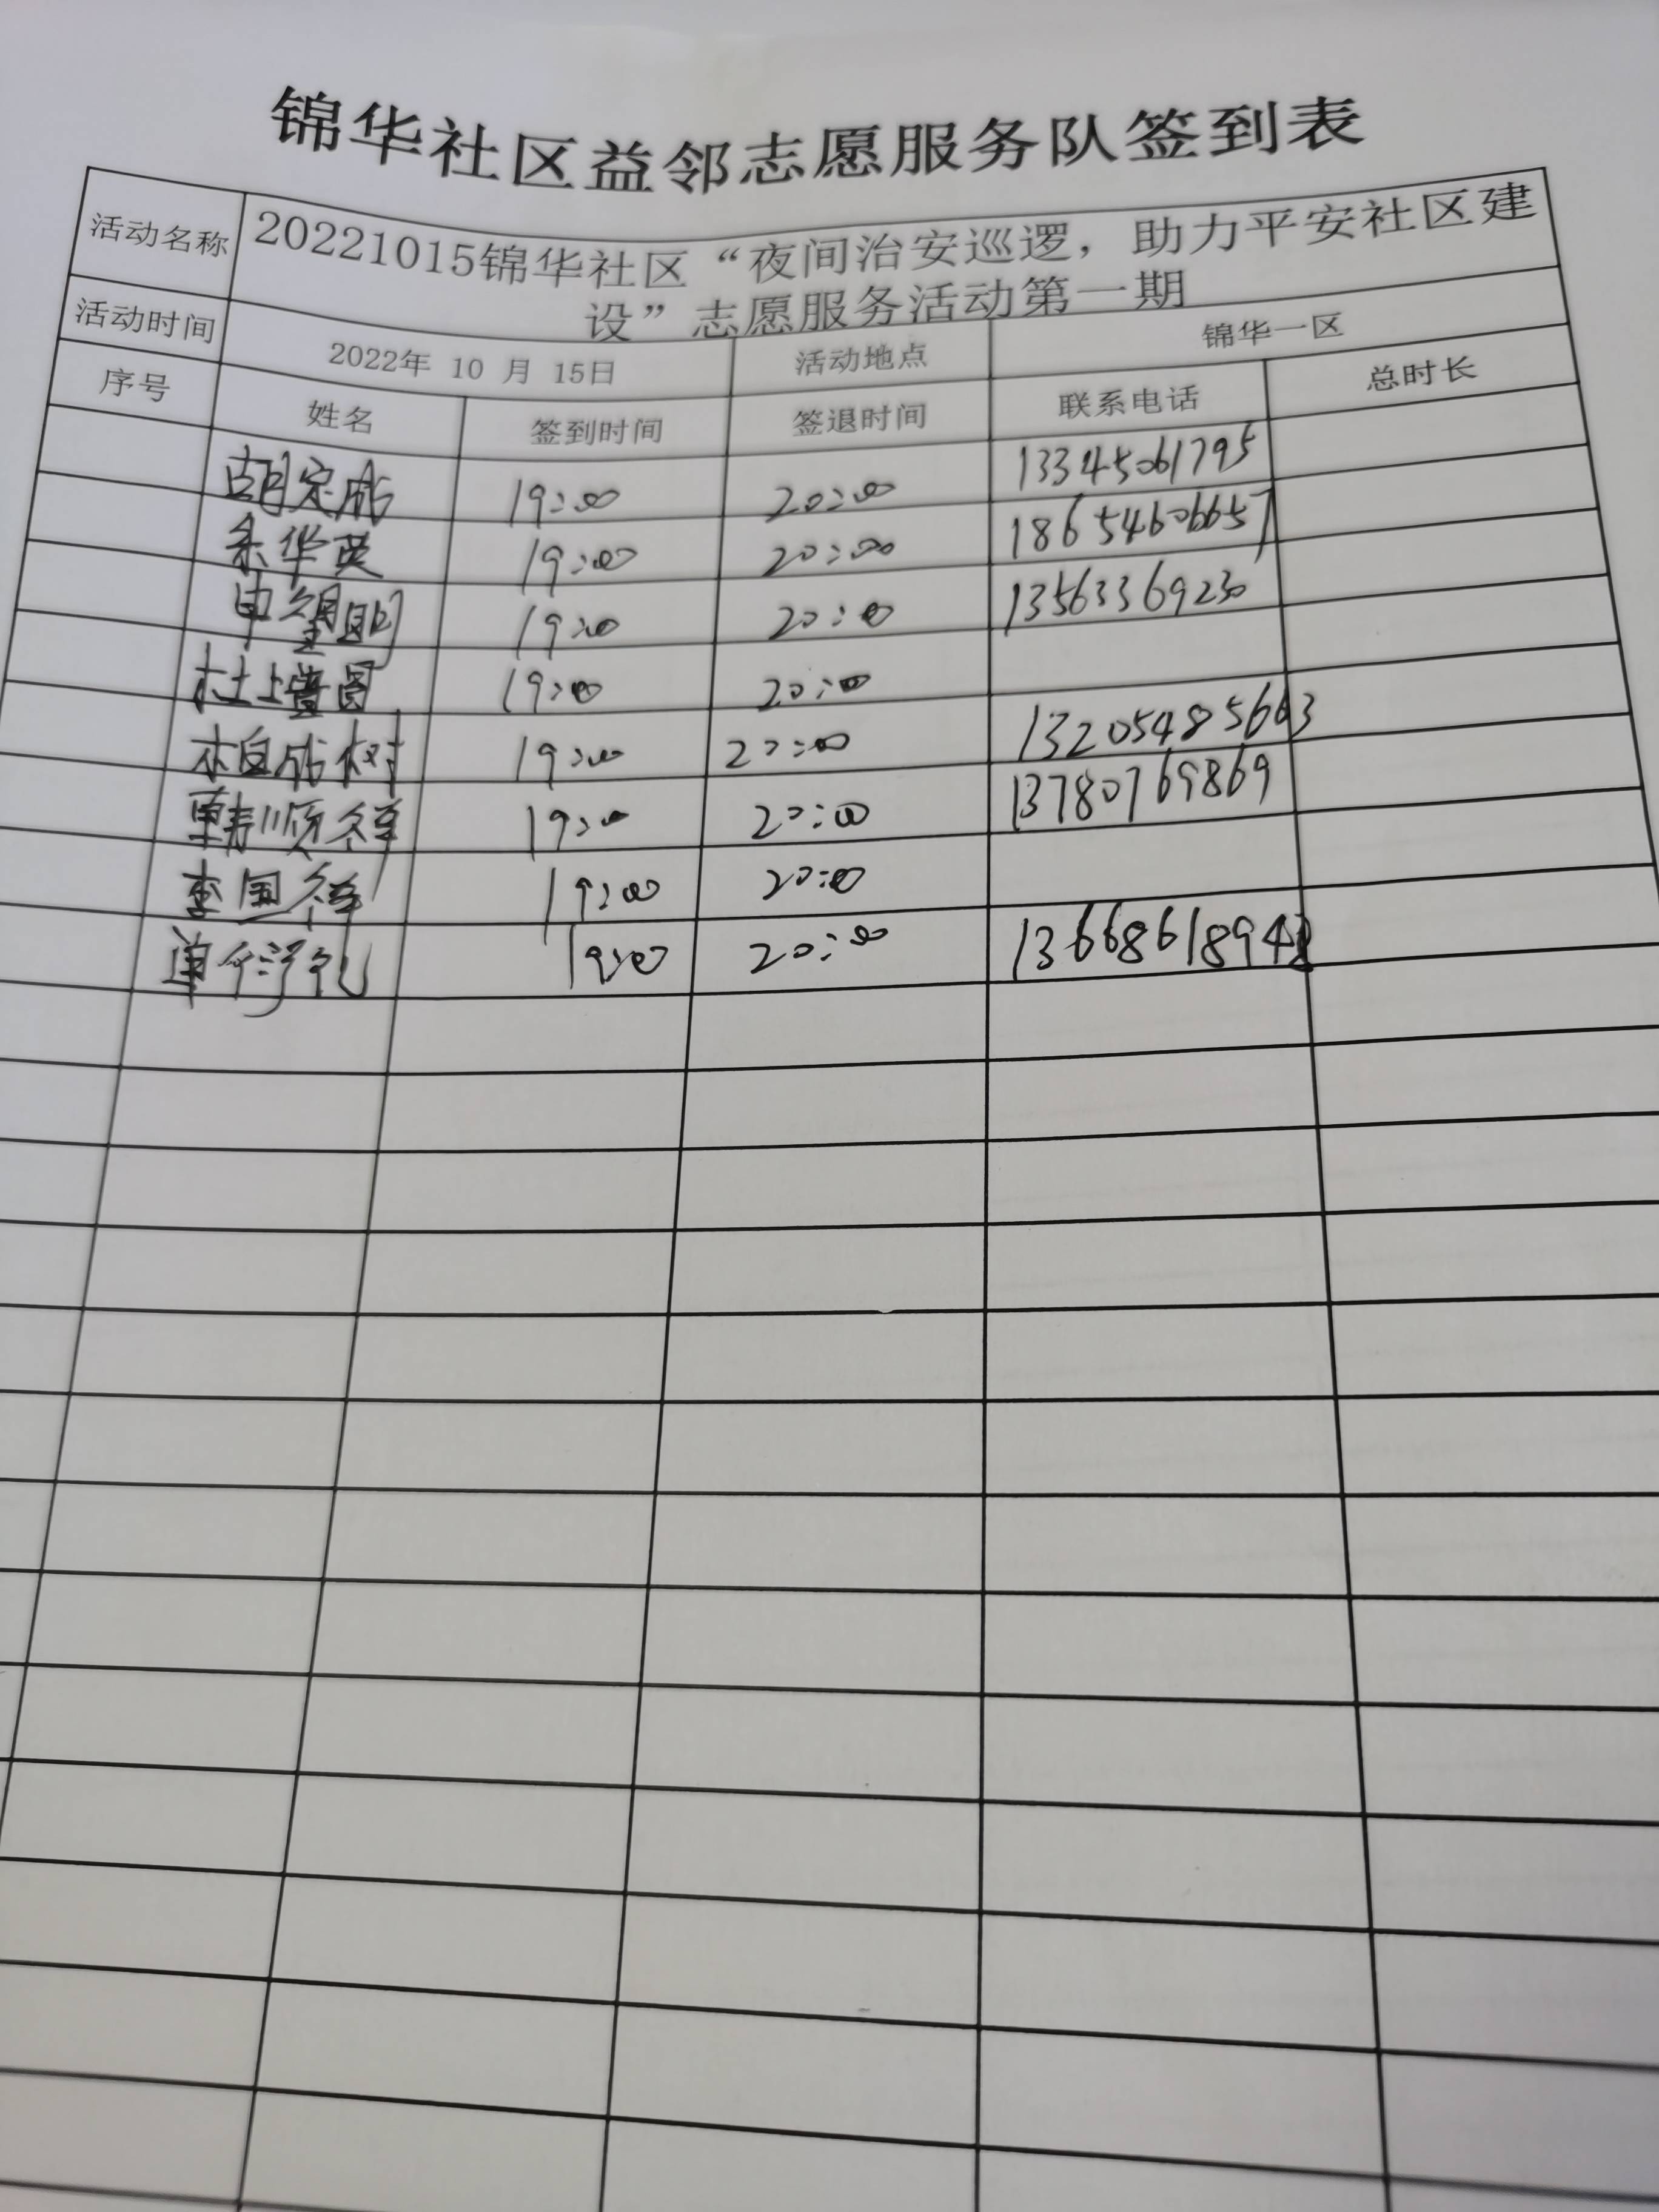 锦华社区益邻志愿服务队签到表
活动名称 20221015锦华社区“夜间治安巡逻，助力平安社区建
设”志愿服务活动第一期
活动时间 2022年 10 月 15日 活动地点 锦华一区
序号 姓名 签到时间 签退时间 联系电话 总时长
胡定成 19:00 20:00 13345061795
19:00 20:00 18654606657
19:00 20:00 13563369230
19:00 20:00
柏成树 19:00 20:00 13205485663
韩顺祥 19:00 20:00 13780769869
李国祥 19:00 20:00
19:00 20:00